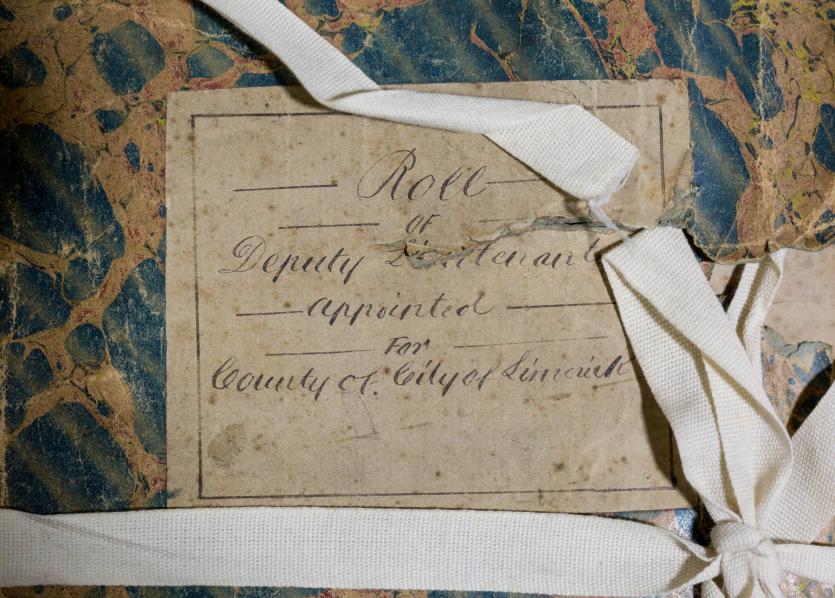 Roll
OF
Deputy Lieutenant
appointed
For
County of. City of Limerick